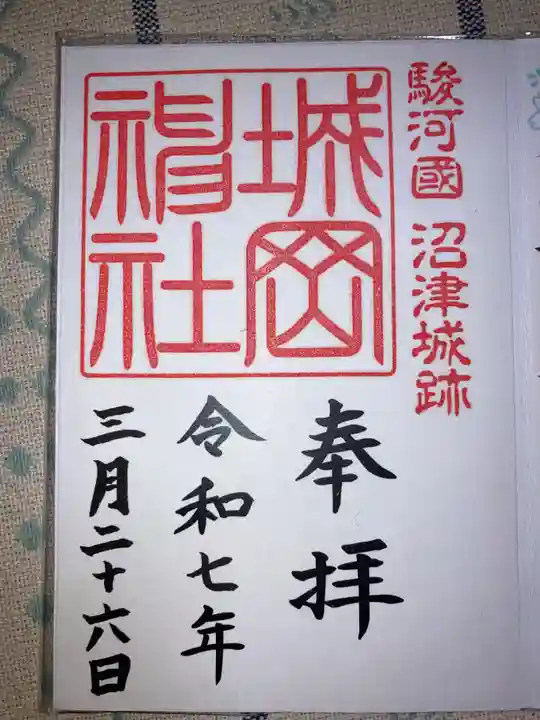 駿河國 沼津城跡
城岡
神社
奉拝
令和七年
三月二十六日